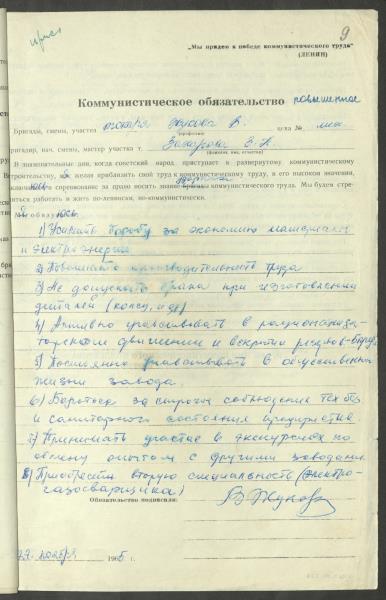 9
„Мы придем к победе коммунистического труда"
(ЛЕНИН)
Коммунистическое обязательство повышенное
Бригады, смены, участка токаря Жукова В. цеха № мех.
(профессия)
бригадир, нач. смены, мастер участка т. Захарова
(фамилия, имя, отчество)
В знаменательные дни, когда советский народ приступает к развернутому коммунистическому
строительству, я желая приблизить свой труд к коммунистическому труду, в его высоком значении,
соревнование за право носить звание коммунистического труда. Мы будем стре-
миться работать и жить по-ленински, по-коммунистически.
обязуюсь
1) Усилить борьбу за экономию материалов
и электроэнергии
2) Повышать производительность труда
3) Не допускать брака при изготовлении
деталей
4) Активно участвовать в рационализа-
торском движении и вскрытии резервов
5) Постоянно участвовать в общественной
жизни завода.
6) Бороться за строгое соблюдение тех без
и санитарного состояния предприятия.
7) Принимать участие в экскурсиях по
обмену опытом с другими заводами
8) Приобрести вторую специальность (электро-
газосварщика)
Обязательство подписали: В Жуков
29 ноября 1965 г.